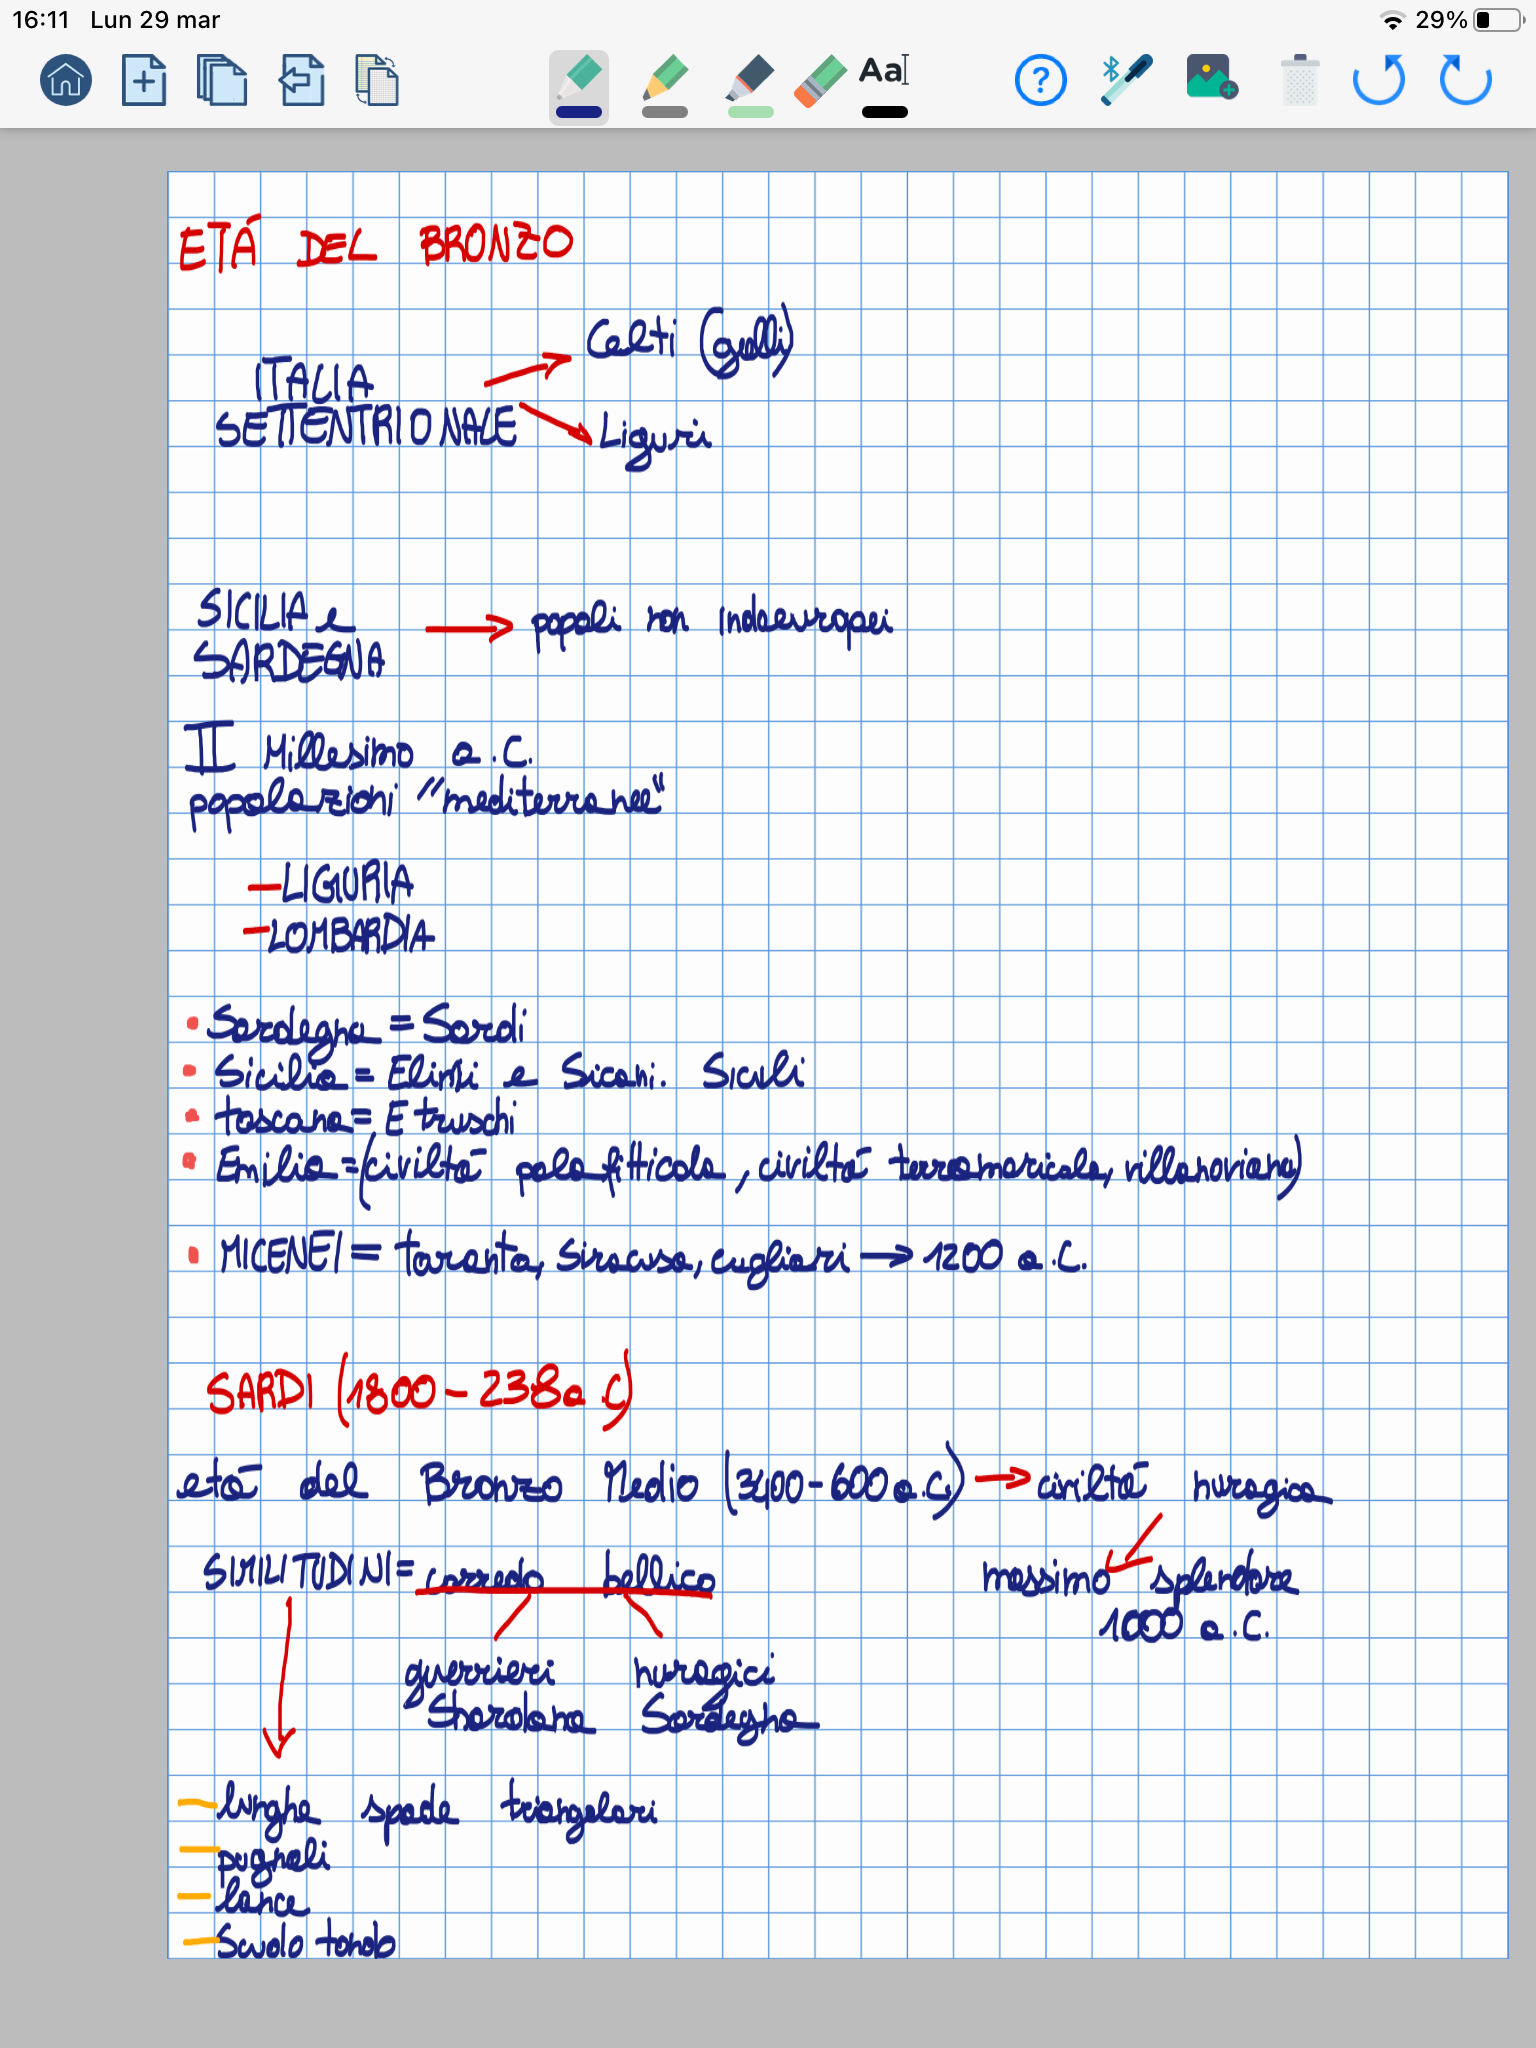 16:11 Lun 29 mar 29%
Aa
?
ETÁ DEL BRONZO
Celti (galli)
ITALIA
SETTENTRIONALE
Liguri
SICILIA e
SARDEGNA
popoli non indoeuropei
II Millesimo a.C.
popolazioni "mediterranee"
- LIGURIA
- LOMBARDIA
• Sardegna = Sardi
• Sicilia = Elimi e Sicani. Siculi
• toscana = Etruschi
• Emilia = (civiltá palafitticola, civiltá terramaricola, villanoviana)
• MICENEI = taranto, Siracusa, cagliari → 1200 a.C.
SARDI (1800 - 238 a.C)
etá del Bronzo Medio (3400 - 600 a.C) → civiltá nuragica
SIMILITUDINI = corredo bellico
massimo splendore
1000 a.C.
guerrieri nuragici
Shardana Sardegna
- lunghe spade triangolari
- pugnali
- lance
- Scudo tondo